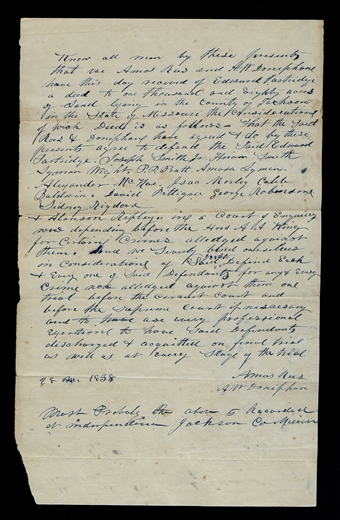 Know all men by these presents
that we Amos Rees and A W Doniphan
have this day received of Edward Partridge
a deed to one thousand and Eighty acres
of Land lying in the County of Jackson
in the State of Missouri the Consideration
of which Deed is as follows That the Said
Rees & Doniphan have agreed & do by these
presents agree to defend the Said Edward
Partridge, Joseph Smith Jr Hiram Smith
Lyman Wight, P. P. Pratt, Amasa Lyman
Alexander McRae Isaac Morley Caleb
Baldwin David Pettigrew George Robinson
Sidney Rigdon
& Alanson Ripley in a Court of Enquiry
now depending before the Hon A A King
for Certain Crimes alledged against
them and we bind ourselves
in Consideration of Defend Each
& Every one of Said Defendants for any & Every
Crime now alledged against them on
trial before the Circuit Court and
before the Supreme Court if necessary
and to use every professional
Exertion to have Said Defendants
discharged & acquitted on final trial
as well as at Every Stage of the trial
28 1838
Amos Rees
A W Doniphan
Most Probably the above is Recorded
at independence Jackson Co